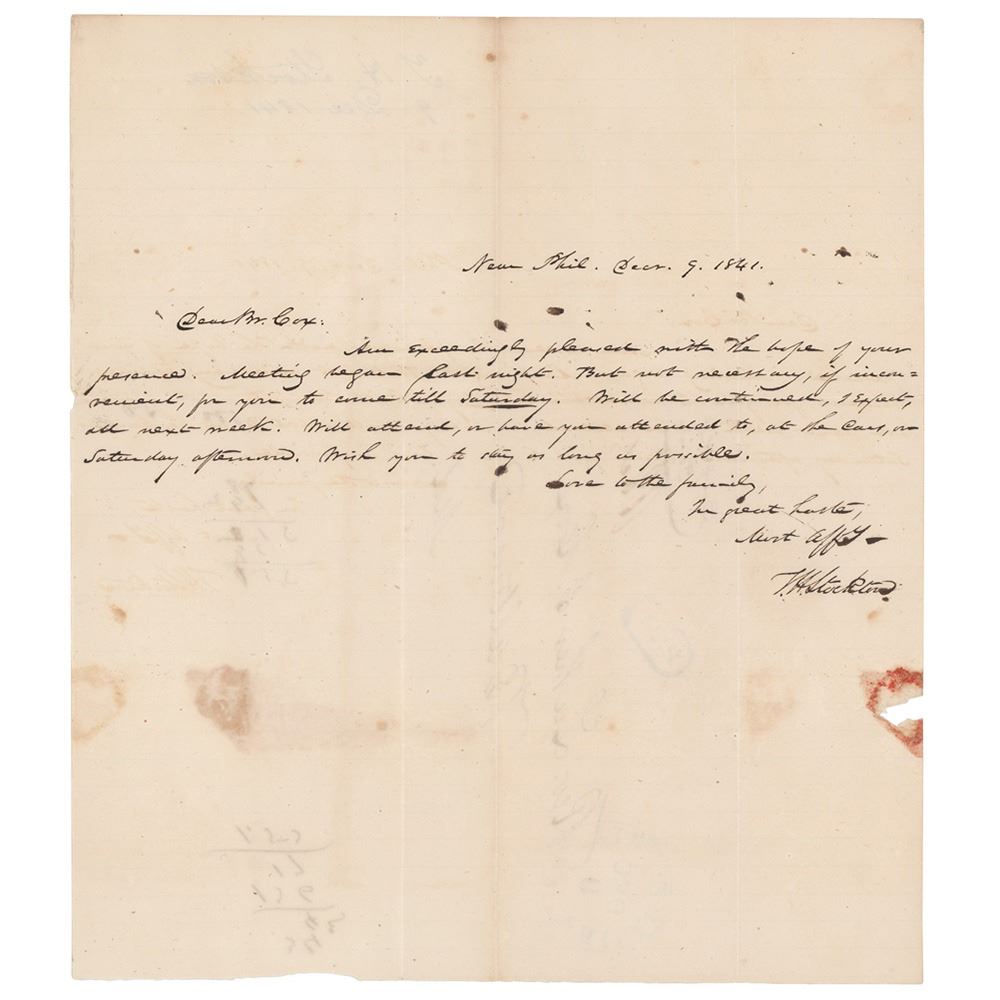 Near Phil. Decr. 9. 1841.
Dear Br. Cox:
Am exceedingly pleased with the hope of your
presence. Meeting began last night. But not necessary, if incon=
venient, for you to come till Saturday. Will be continued, I expect,
all next week. Will attend, or have you attended to, at the Cars, on
Saturday afternoon. Wish you to stay as long as possible.
Love to the family,
In great haste,
Most Affy
T.H. Stockton